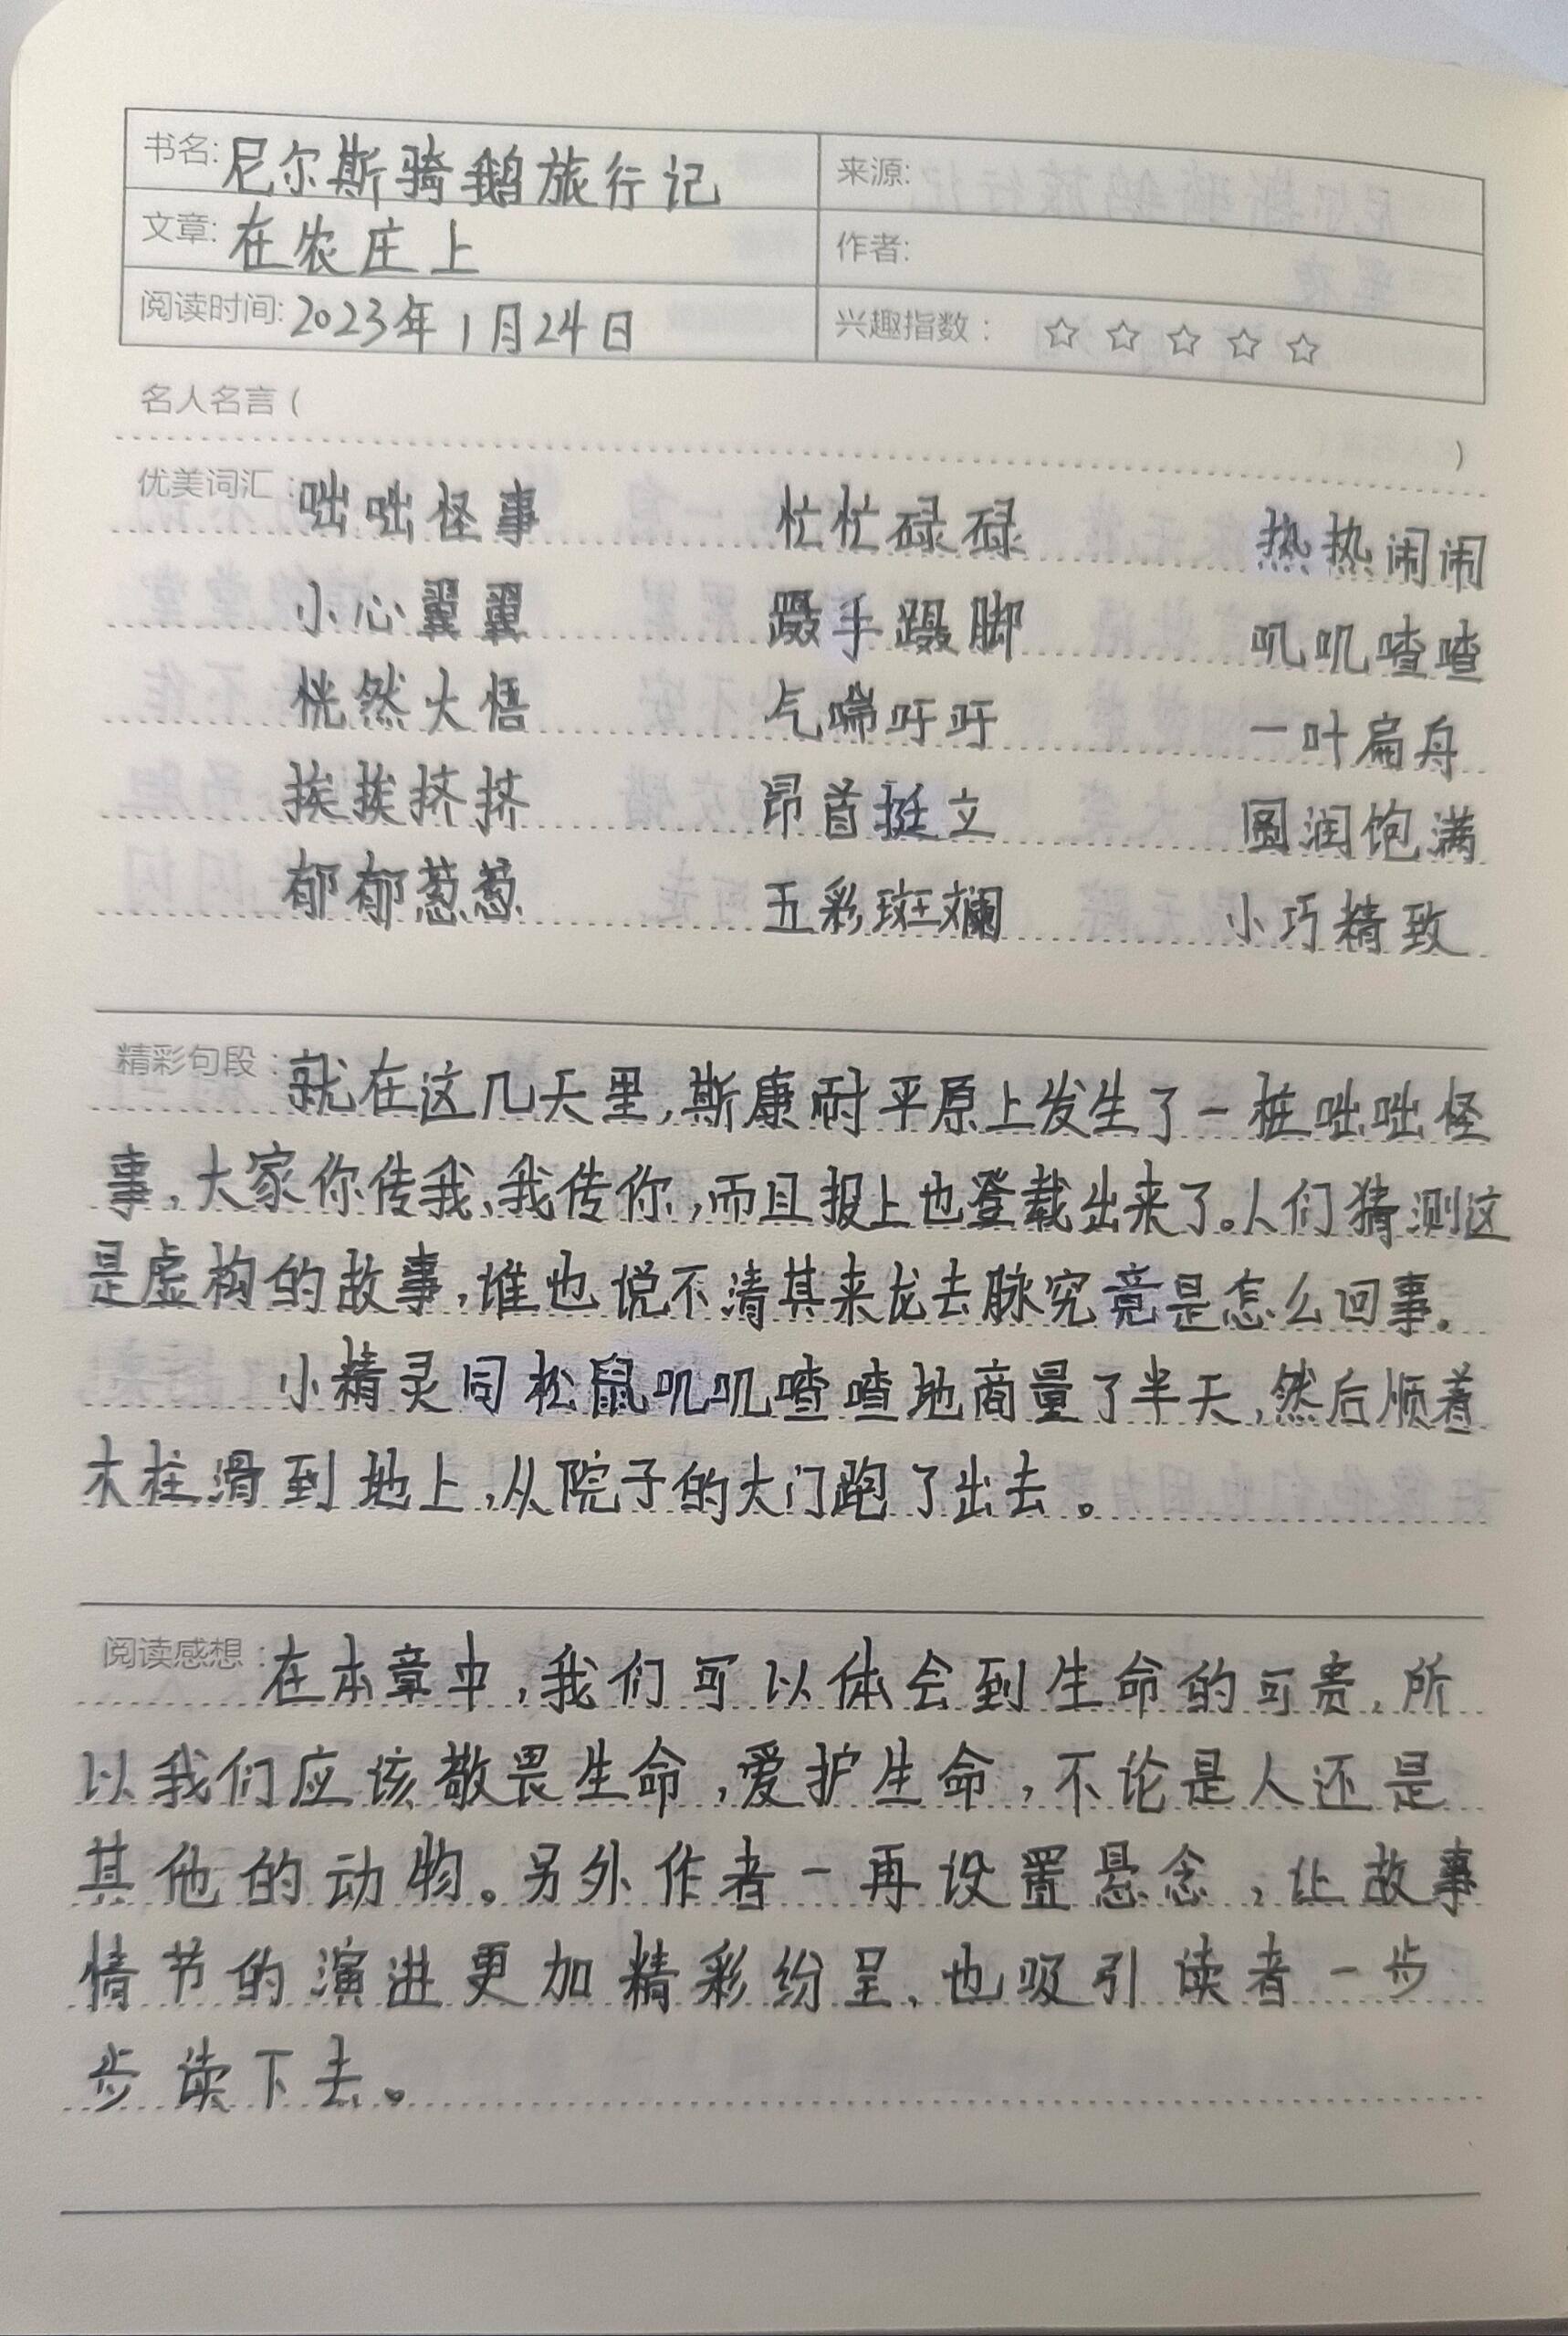 书名:尼尔斯骑鹅旅行记 来源:
文章:在农庄上 作者:
阅读时间:2023年1月24日 兴趣指数：☆☆☆☆☆
名人名言(
)
优美词汇：咄咄怪事 忙忙碌碌 热热闹闹
小心翼翼 蹑手蹑脚 叽叽喳喳
恍然大悟 气喘吁吁 一叶扁舟
挨挨挤挤 昂首挺立 圆润饱满
郁郁葱葱 五彩斑斓 小巧精致
精彩句段：就在这几天里,斯康耐平原上发生了一桩咄咄怪
事,大家你传我、我传你,而且报上也登载出来了。人们猜测这
是虚构的故事,谁也说不清其来龙去脉究竟是怎么回事。
小精灵同松鼠叽叽喳喳地商量了半天,然后顺着
木柱滑到地上,从院子的大门跑了出去。
阅读感想：在本章中,我们可以体会到生命的可贵,所
以我们应该敬畏生命,爱护生命,不论是人还是
其他的动物。另外作者一再设置悬念,让故事
情节的演进更加精彩纷呈,也吸引读者一步
步读下去。